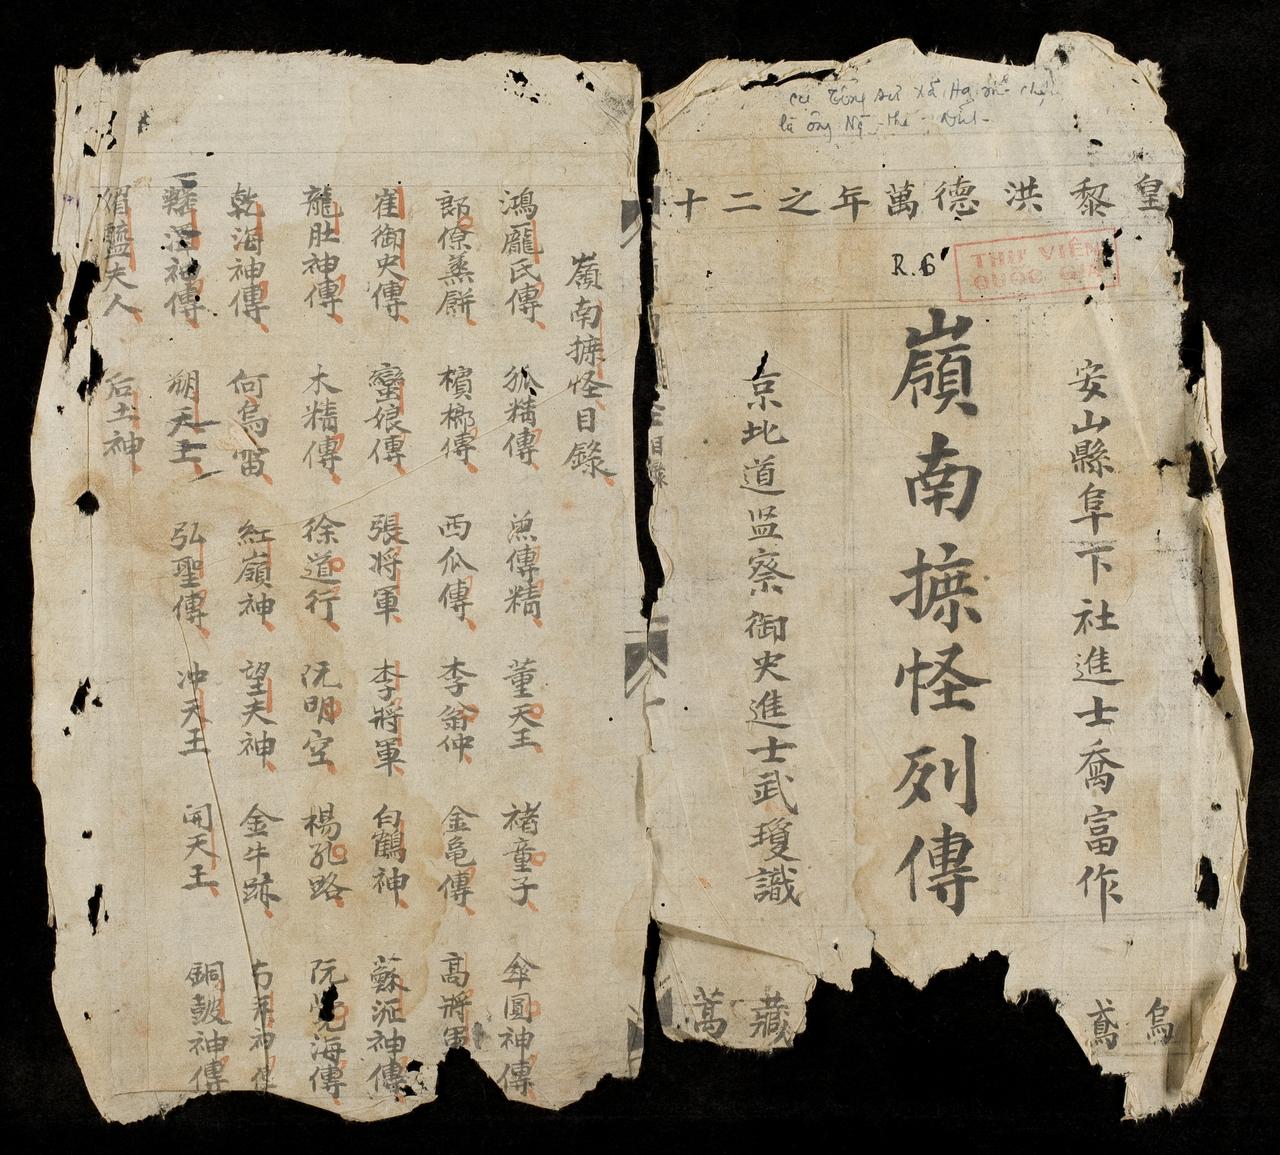 là ông
皇黎洪德萬年之二十
R.6
THƯ VIỆN
QUỐC GIA
安山縣阜下社進士喬富作
嶺南摭怪列傳
京北道监察御史進士武瓊識
烏
鳶
藏
萬
嶺南摭怪目錄
鴻龐氏傳 狐精傳 魚傳精 董天王 褚童子 傘圓神傳
郎僚蒸餅 檳榔傳 西瓜傳 李翁仲 金龜傳 高將軍
崔御史傳 蠻娘傳 張将軍 李將軍 白鶴神 蘇沥神傳
龍肚神傳 木精傳 徐道行 阮明空 楊孔路 阮覺海傳
乾海神傳 何烏雷 紅嶺神 望夫神 金牛跡
神傳 朔天王 弘聖傳 冲天王 開天王 銅皷神傳
媚醯夫人 后土神